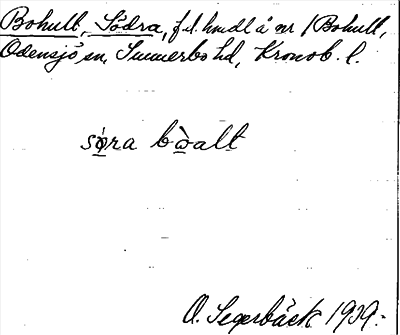 Bohult, Södra, f.d. hmdl å nr 1 Bohult,
Odensjö sn, Sunnerbo hd, Kronob. l.
sø̀ra bò̱alt
O. Segerbäck 1939.